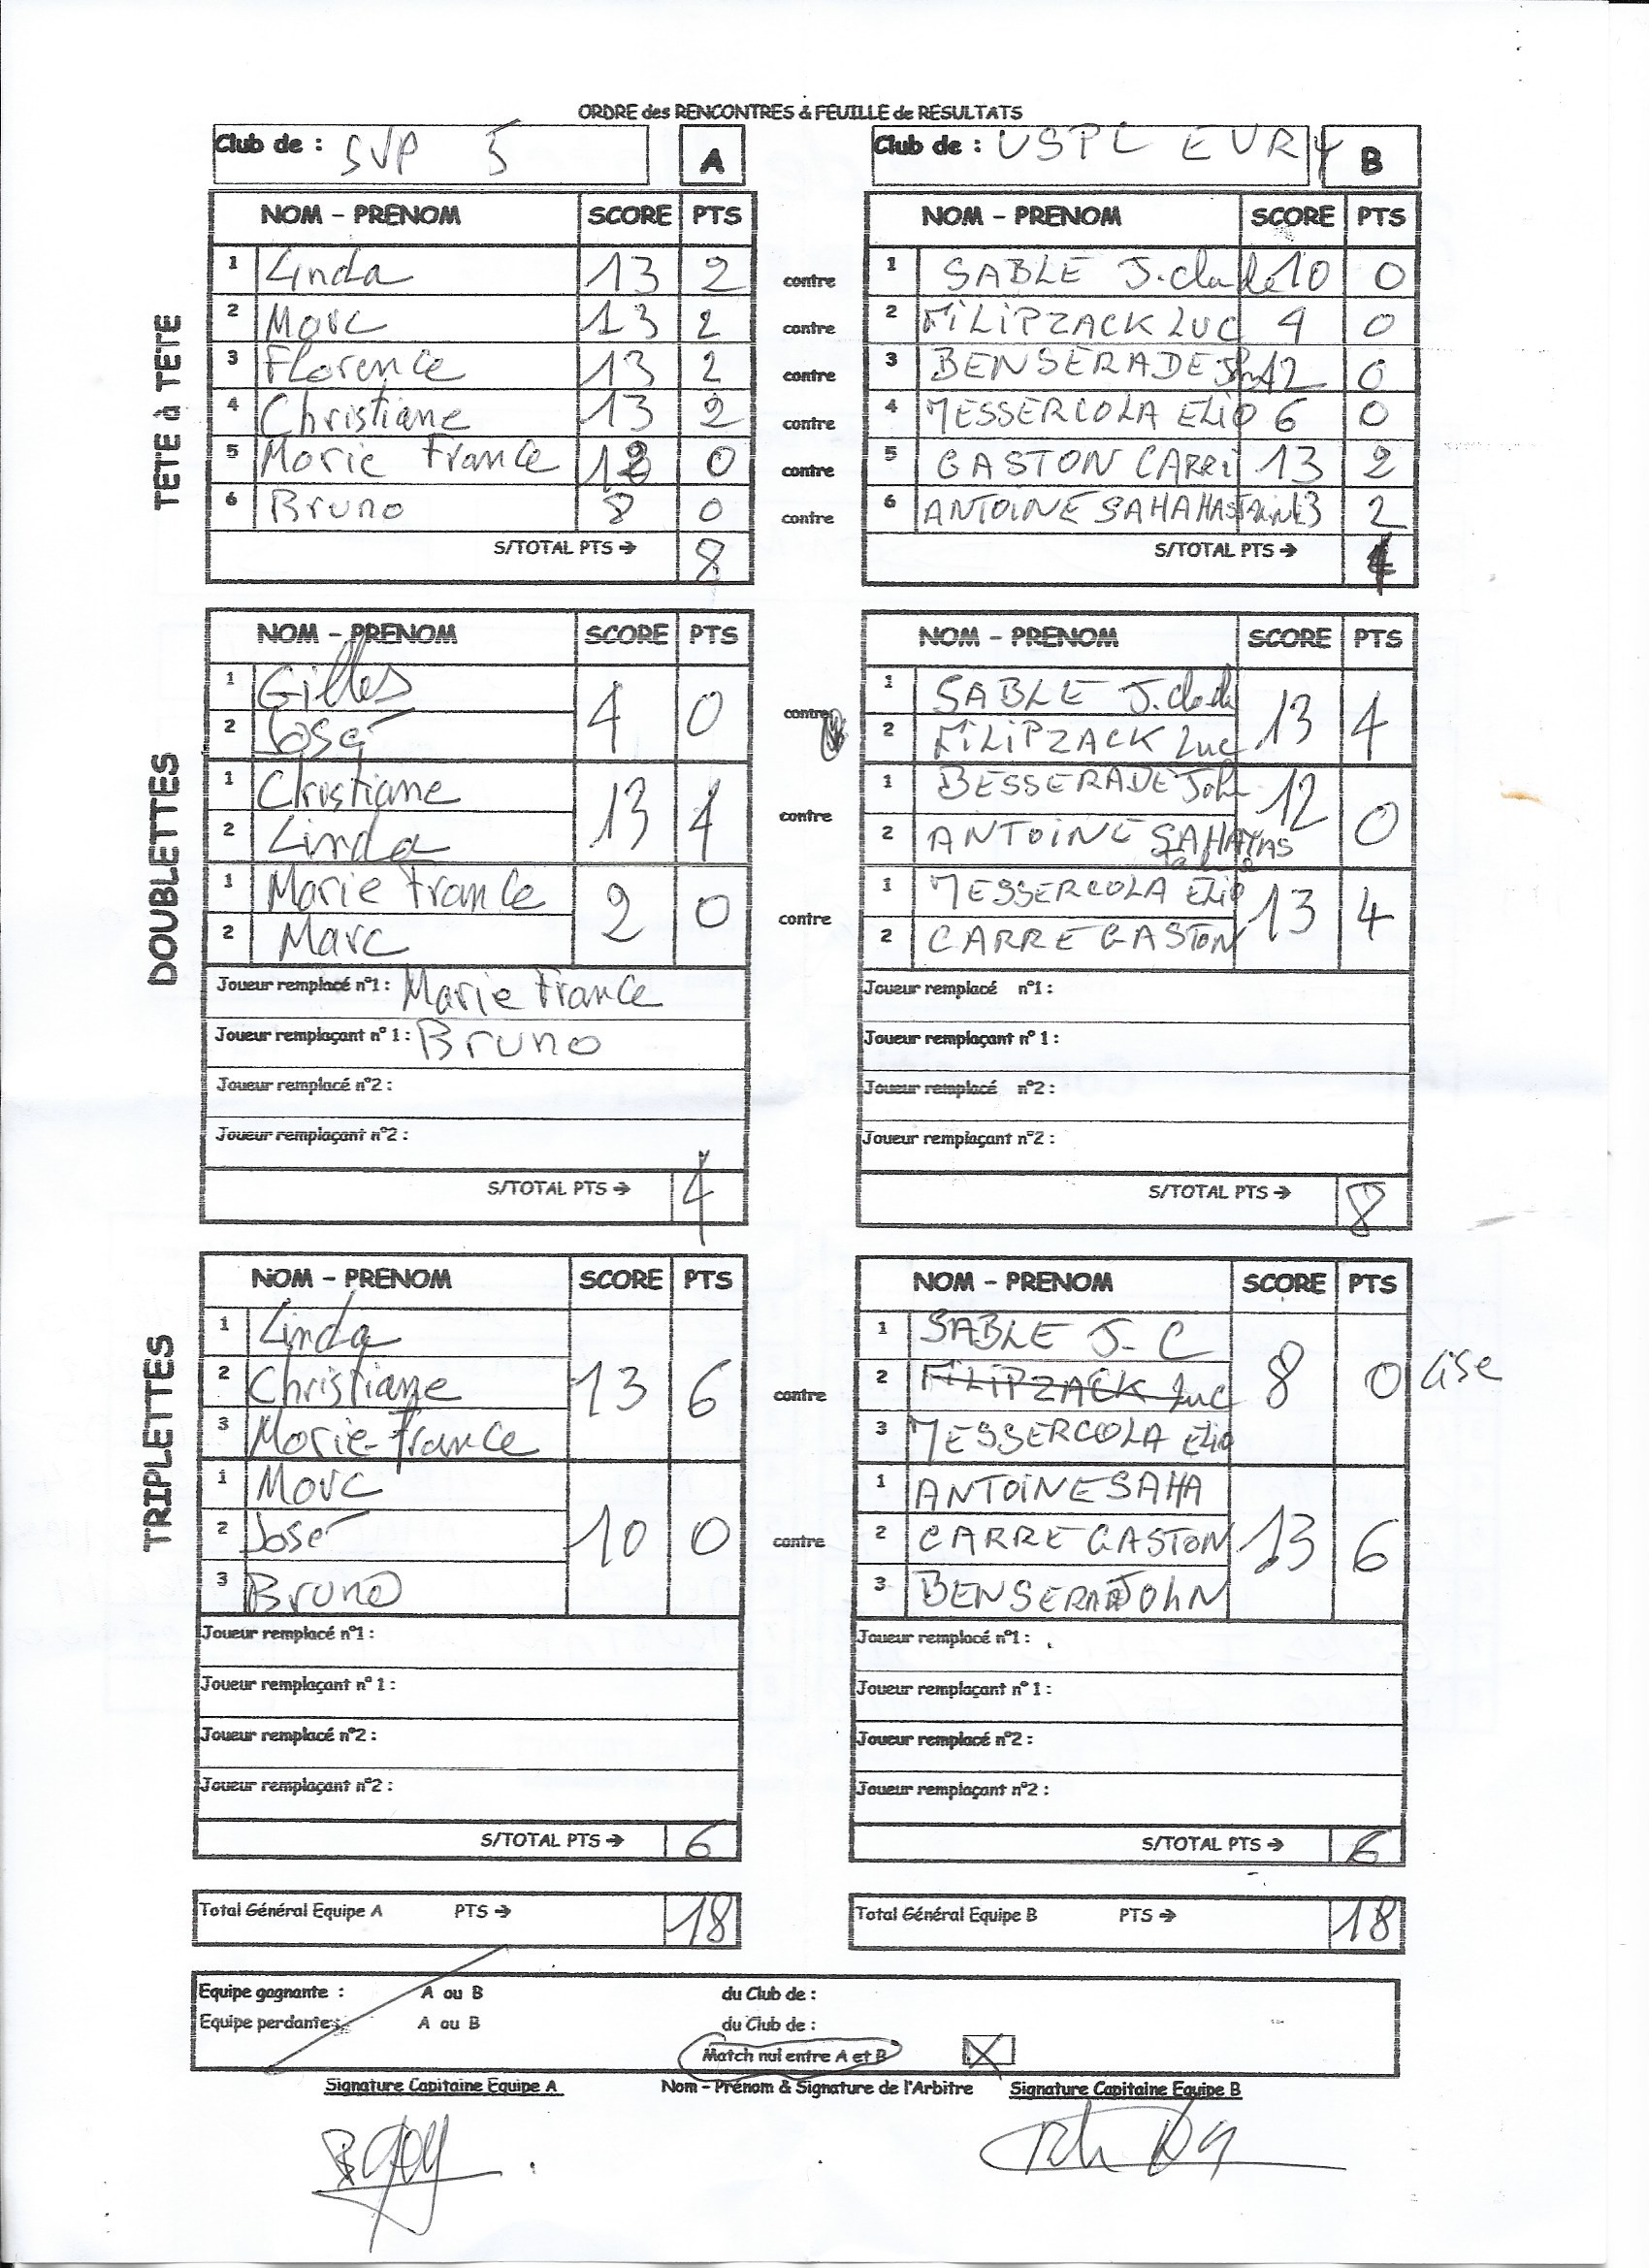 ORDRE des RENCONTRES & FEUILLE de RESULTATS
Club de : SVP 5 A
Club de : USPL EVRY B
NOM - PRENOM SCORE PTS NOM - PRENOM SCORE PTS
TETE à TETE
1 Linda 13 2 contre 1 SABLE J. claude 10 0
2 Marc 13 2 contre 2 FILIPZACK LUC 0
3 Florence 13 2 contre 3 BENSERADE 12 0
4 Christiane 13 2 contre 4 MESSERCOLA ELIO 6 0
5 Marie France 12 0 contre 5 GASTON CARRE 13 2
6 Bruno 8 0 contre 6 ANTOINE 13 2
S/TOTAL PTS → 8 S/TOTAL PTS → 4
DOUBLETTES
NOM - PRENOM SCORE PTS NOM - PRENOM SCORE PTS
1 Gilles 4 0 contre 1 SABLE J. claude 13 4
2 José 2 FILIPZACK Luc
1 Christiane 13 4 contre 1 BESSERADE John 12 0
2 Linda 2 ANTOINE SAHAYAS
1 Marie France 2 0 contre 1 MESSERCOLA Elio 13 4
2 Marc 2 CARRE GASTON
Joueur remplacé n°1 : Marie France Joueur remplacé n°1 :
Joueur remplaçant n° 1 : Bruno Joueur remplaçant n° 1 :
Joueur remplacé n°2 : Joueur remplacé n°2 :
Joueur remplaçant n°2 : Joueur remplaçant n°2 :
S/TOTAL PTS → 4 S/TOTAL PTS → 8
TRIPLETTES
NOM - PRENOM SCORE PTS NOM - PRENOM SCORE PTS
1 Linda 13 6 contre 1 SABLE J-C 8 0
2 Christiane 2 FILIPZACK Luc Lise
3 Marie-France 3 MESSERCOLA Elio
1 Marc 10 0 contre 1 ANTOINE SAHA 13 6
2 José 2 CARRE GASTON
3 Bruno 3 JOHN
Joueur remplacé n°1 : Joueur remplacé n°1 :
Joueur remplaçant n° 1 : Joueur remplaçant n° 1 :
Joueur remplacé n°2 : Joueur remplacé n°2 :
Joueur remplaçant n°2 : Joueur remplaçant n°2 :
S/TOTAL PTS → 6 S/TOTAL PTS → 6
Total Général Equipe A PTS → 18 Total Général Equipe B PTS → 18
Equipe gagnante : A ou B du Club de :
Equipe perdante : A ou B du Club de :
Match nul entre A et B X
Signature Capitaine Equipe A Nom - Prénom & Signature de l'Arbitre Signature Capitaine Equipe B